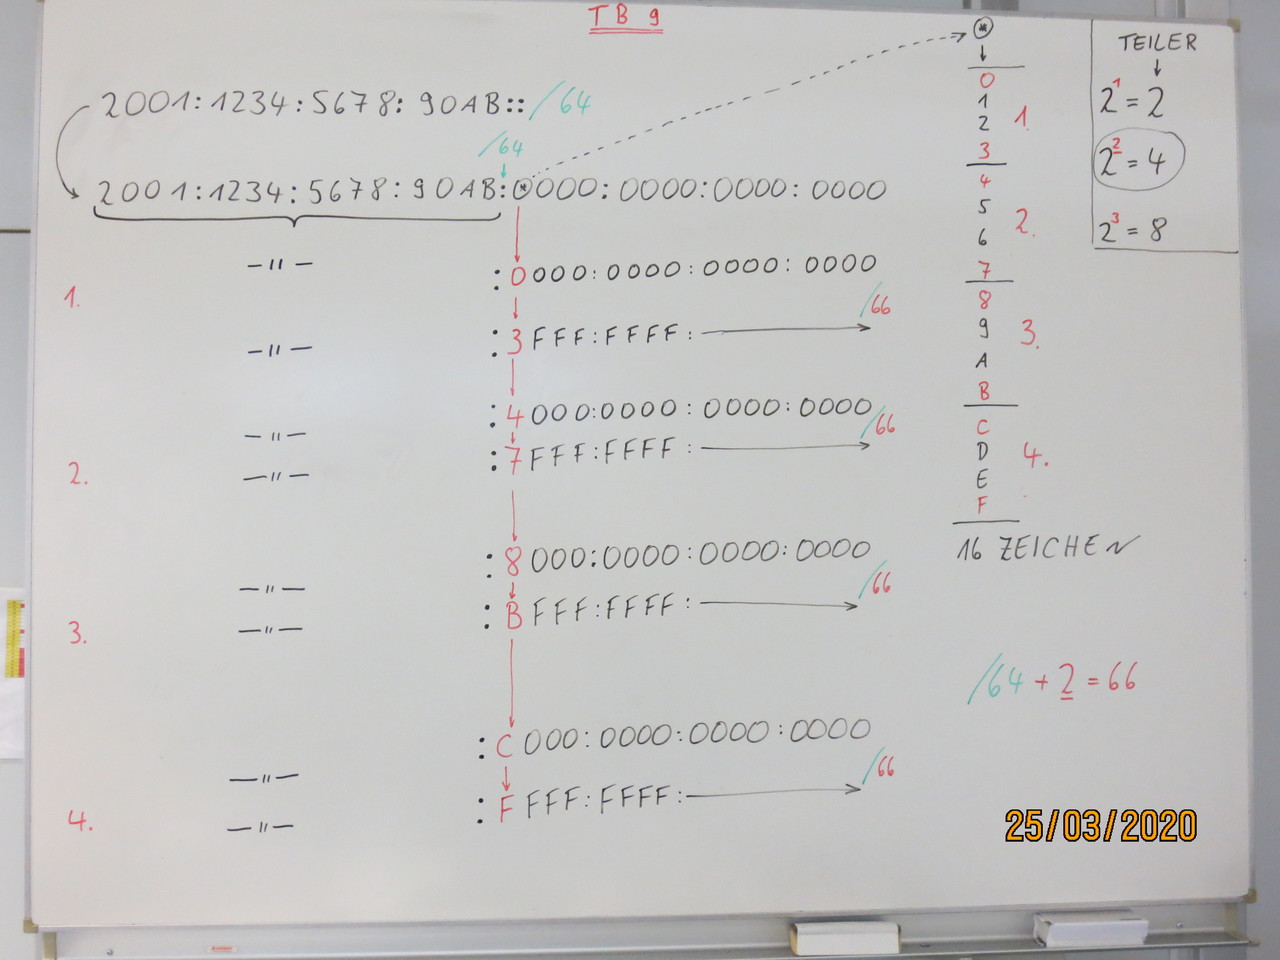 TB 9
2001:1234:5678:90AB::/64
/64
2001:1234:5678:90AB:0000:0000:0000:0000
1.
—〃— :0000:0000:0000:0000
—〃— :3FFF:FFFF: /66
2.
—〃— :4000:0000:0000:0000
—〃— :7FFF:FFFF: /66
3.
—〃— :8000:0000:0000:0000
—〃— :BFFF:FFFF: /66
4.
—〃— :C000:0000:0000:0000
—〃— :FFFF:FFFF: /66
*
0
1
2 1.
3
4
5
6 2.
7
8
9 3.
A
B
C
D 4.
E
F
16 ZEICHEN
TEILER
2¹ = 2
2² = 4
2³ = 8
/64 + 2 = 66
25/03/2020